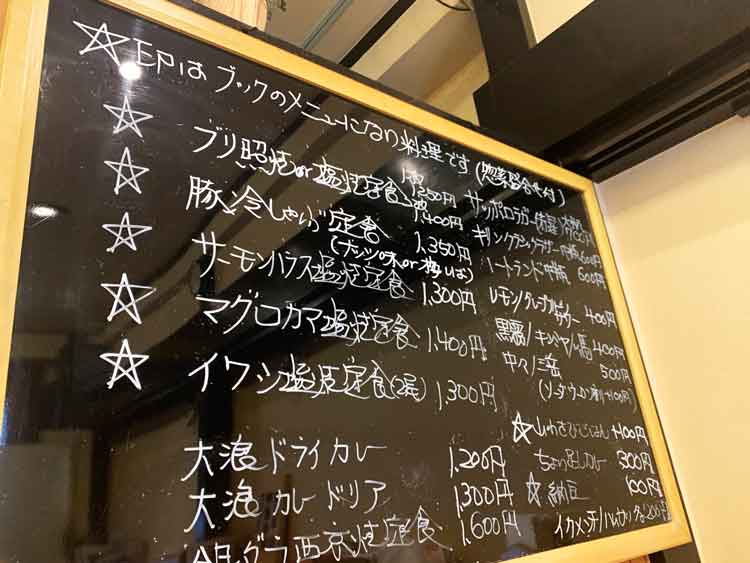 ☆印は ブックのメニューにない料理です(惣菜盛合せ付)
☆ ブリ照焼or塩焼定食
☆ 豚冷しゃぶ定食 1,350円
(ナッツ味or梅しそ)
☆ サーモンハラス塩焼定食 1,300円
☆ マグロカマ塩焼定食 1,400円
☆ イワシ塩焼定食(2尾) 1,300円
大浪ドライカレー 1,200円
大浪カレードリア 1,300円
西京焼定食 1,600円
サッポロラガー(赤星)
キリンクラシックラガー中瓶 600円
ハートランド中瓶 600円
レモン/グレープフルーツサワー 400円
400円
中々/三岳 500円
☆山わさびごはん +100円
ちょい足しカレー 300円
☆納豆 100円
イカメンチ/ハムカツ 各200円